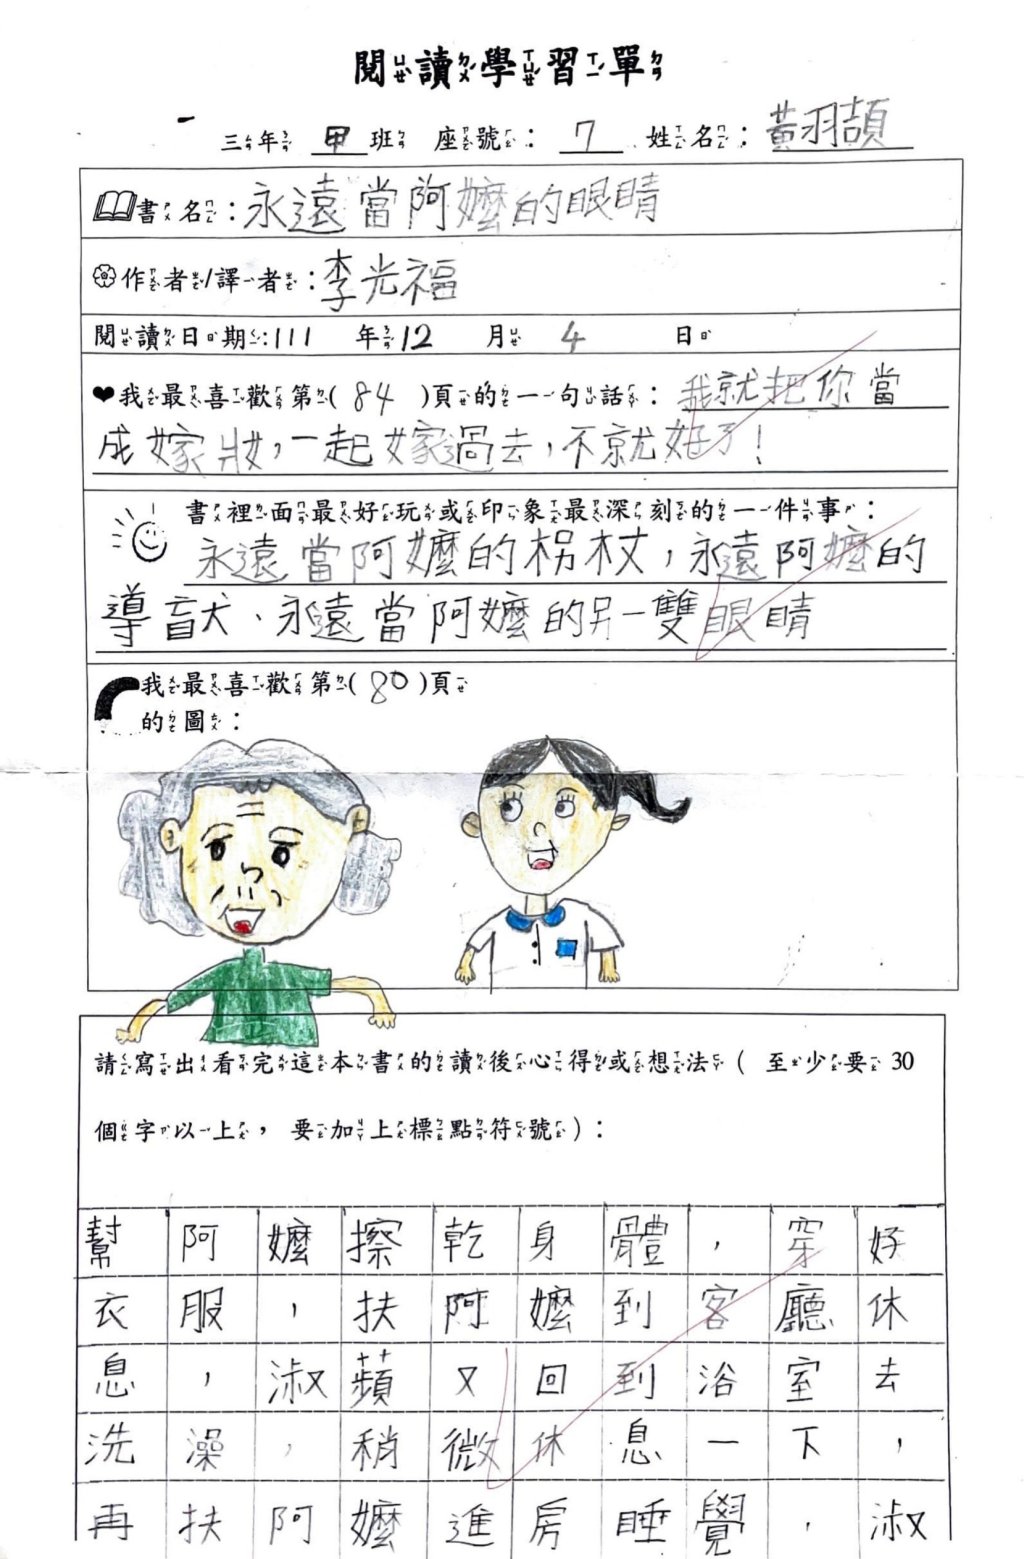 閱讀學習單
三年 甲 班 座號: 7 姓名: 黃羽頡
書名:永遠當阿嬤的眼睛
作者/譯者:李光福
閱讀日期:111 年 12 月 4 日
我最喜歡第(84)頁的一句話: 我就把你當
成嫁妝,一起嫁過去,不就好了!
書裡面最好玩或印象最深刻的一件事:
永遠當阿嬤的柺杖,永遠阿嬤的
導盲犬、永遠當阿嬤的另一雙眼睛
我最喜歡第(80)頁
的圖:
請寫出看完這本書的讀後心得或想法( 至少要 30
個字以上, 要加上標點符號):
幫阿嬤擦乾身體,穿好
衣服,扶阿嬤到客廳休
息,淑蘋又回到浴室去
洗澡,稍微休息一下,
再扶阿嬤進房睡覺,淑